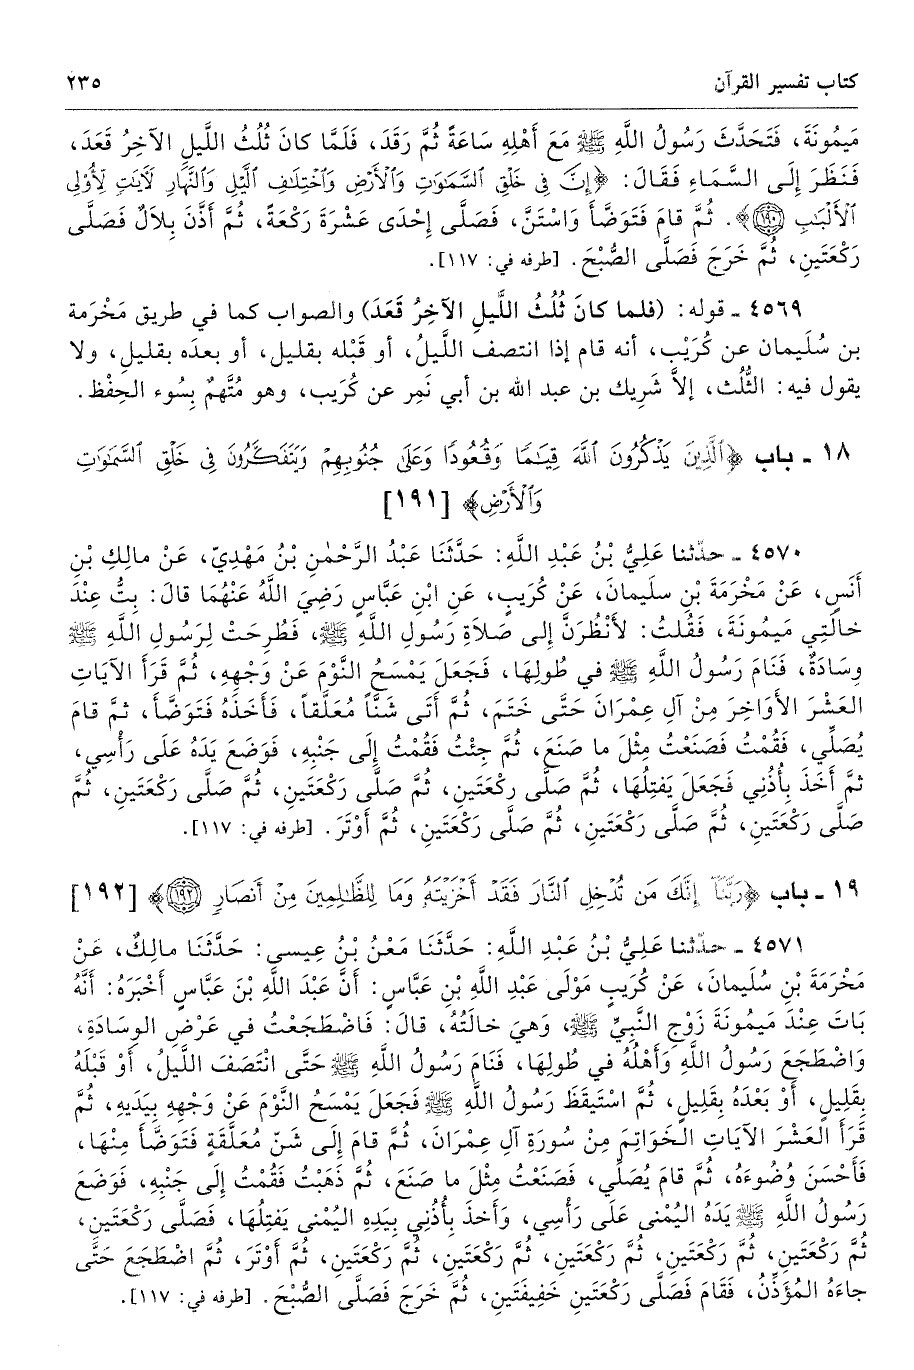 كتاب تفسير القرآن ٢٣٥
مَيمُونَةَ، فَتَحَدَّثَ رَسُولُ اللَّهِ ﷺ مَعَ أَهْلِهِ سَاعَةً ثُمَّ رَقَدَ، فَلَمَّا كانَ ثُلُثُ اللَّيلِ الآخِرُ قَعَدَ،
فَنَظَرَ إِلَى السَّمَاءِ فَقَالَ: ﴿إِنَّ فِي خَلْقِ ٱلسَّمَٰوَٰتِ وَٱلْأَرْضِ وَٱخْتِلَٰفِ ٱلَّيْلِ وَٱلنَّهَارِ لَأٓيَٰتٍ لِّأُو۟لِي
ٱلْأَلْبَٰبِ ١٩٠﴾. ثُمَّ قامَ فَتَوَضَّأَ وَاسْتَنَّ، فَصَلَّى إِحْدَى عَشْرَةَ رَكْعَةً، ثُمَّ أَذَّنَ بِلاَلٌ فَصَلَّى
رَكْعَتَينِ، ثُمَّ خَرَجَ فَصَلَّى الصُّبْحَ. [طرفه في: ١١٧].
٤٥٦٩ ـ قوله: (فلما كانَ ثُلُثُ اللَّيلِ الآخِرُ قَعَدَ) والصواب كما في طريق مَخْرَمة
بن سُلَيمان عن كُرَيْب، أنه قام إذا انتصف الليلُ، أو قَبْله بقليل، أو بعدَه بقليلٍ، ولا
يقول فيه: الثُّلُث، إلاَّ شَرِيك بن عبد الله بن أبي نَمِر عن كُرَيب، وهو مُتَّهمٌ بِسُوء الحِفْظ.
١٨ ـ باب ﴿ٱلَّذِينَ يَذْكُرُونَ ٱللَّهَ قِيَٰمًا وَقُعُودًا وَعَلَىٰ جُنُوبِهِمْ وَيَتَفَكَّرُونَ فِي خَلْقِ ٱلسَّمَٰوَٰتِ
وَٱلْأَرْضِ﴾ [١٩١]
٤٥٧٠ ـ حدّثنا عَلِيُّ بْنُ عَبْدِ اللَّهِ: حَدَّثَنَا عَبْدُ الرَّحْمٰنِ بْنُ مَهْدِيٍّ، عَنْ مالِكِ بْنِ
أَنَسٍ، عَنْ مَخْرَمَةَ بْنِ سلَيمانَ، عَنْ كُرَيبٍ، عَنِ ابْنِ عَبَّاسٍ رَضِيَ اللَّهُ عَنْهُمَا قالَ: بِتُّ عِنْدَ
خالَتِي مَيمُونَةَ، فَقُلتُ: لأَنْظُرَنَّ إِلى صَلاَةِ رَسُولِ اللَّهِ ﷺ، فَطُرِحَتْ لِرَسُولِ اللَّهِ ﷺ
وِسَادَةٌ، فَنَامَ رَسُولُ اللَّهِ ﷺ في طُولِهَا، فَجَعَلَ يَمْسَحُ النَّوْمَ عَنْ وَجْهِهِ، ثُمَّ قَرَأَ الآيَاتِ
العَشْرَ الأَوَاخِرَ مِنْ آلِ عِمْرَانَ حَتَّى خَتَمَ، ثُمَّ أَتَى شَنًّا مُعَلَّقاً، فَأَخَذَهُ فَتَوَضَّأَ، ثمَّ قامَ
يُصَلِّي، فَقُمْتُ فَصَنَعْتُ مِثْلَ ما صَنَعَ، ثُمَّ جِئْتُ فَقُمْتُ إِلَى جَنْبِهِ، فَوَضَعَ يَدَهُ عَلَى رَأْسِي،
ثمَّ أَخَذَ بِأُذُنِي فَجَعَلَ يَفتِلُهَا، ثُمَّ صَلَّى ركْعَتَينِ، ثُمَّ صَلَّى رَكْعَتَينِ، ثُمَّ صَلَّى رَكْعَتَينِ، ثُمَّ
صَلَّى رَكْعَتَينِ، ثُمَّ صَلَّى رَكْعَتَينِ، ثُمَّ صَلَّى رَكْعَتَينِ، ثُمَّ أَوْتَرَ. [طرفه في: ١١٧].
١٩ ـ باب ﴿رَبَّنَآ إِنَّكَ مَن تُدْخِلِ ٱلنَّارَ فَقَدْ أَخْزَيْتَهُۥ وَمَا لِلظَّٰلِمِينَ مِنْ أَنصَارٍ ١٩٢﴾ [١٩٢]
٤٥٧١ ـ حدّثنا عَلِيُّ بْنُ عَبْدِ اللَّهِ: حَدَّثَنَا مَعْنُ بْنُ عِيسى: حَدَّثَنَا مالِكٌ، عَنْ
مَخْرَمَةَ بْنِ سُلَيمانَ، عَنْ كُرَيبٍ مَوْلَى عَبْدِ اللَّهِ بْنِ عَبَّاسٍ: أَنَّ عَبْدَ اللَّهِ بْنَ عَبَّاسٍ أَخْبَرَهُ: أَنَّهُ
بَاتَ عِنْدَ مَيمُونَةَ زَوْجِ النَّبِيِّ ﷺ، وَهيَ خالَتُهُ، قالَ: فَاضْطَجَعْتُ في عَرْضِ الوِسَادَةِ،
وَاضْطَجَعَ رَسُولُ اللَّهِ وَأَهْلُهُ في طُولِهَا، فَنَامَ رَسُولُ اللَّهِ ﷺ حَتَّى انْتَصَفَ اللَّيلُ، أَوْ قَبْلَهُ
بِقَلِيلٍ، أَوْ بَعْدَهُ بِقَلِيلٍ، ثُمَّ اسْتَيقَظَ رَسُولُ اللَّهِ ﷺ فَجَعَلَ يَمْسَحُ النَّوْمَ عَنْ وَجْهِهِ بِيَدَيهِ، ثمَّ
قَرَأَ العَشْرَ الآيَاتِ الخَوَاتِمَ مِنْ سُورَةِ آلِ عِمْرَانَ، ثُمَّ قامَ إِلَى شَنّ مُعَلَّقَةٍ فَتَوَضَّأَ مِنْهَا،
فَأَحْسَنَ وُضُوءَهُ، ثُمَّ قامَ يُصَلِّي، فَصَنَعْتُ مِثْلَ ما صَنَعَ، ثُمَّ ذَهَبْتُ فَقُمْتُ إِلَى جَنْبِهِ، فَوَضَعَ
رَسُولُ اللَّهِ ﷺ يَدَهُ اليُمْنى عَلَى رَأْسِي، وَأَخَذَ بِأُذُنِي بِيَدِهِ اليُمْنى يَفتِلُهَا، فَصَلَّى رَكْعَتَينِ،
ثُمَّ رَكْعَتَينِ، ثُمَّ رَكْعَتَينِ، ثُمَّ رَكْعَتَينِ، ثُمَّ رَكْعَتَينِ، ثُمَّ رَكْعَتَينِ، ثُمَّ أَوْتَرَ، ثُمَّ اضْطَجَعَ حَتَّى
جاءَهُ المُؤَذِّنُ، فَقَامَ فَصَلَّى رَكْعَتَينِ خَفِيفَتَينِ، ثُمَّ خَرَجَ فَصَلَّى الصُّبْحَ. [طرفه في: ١١٧].